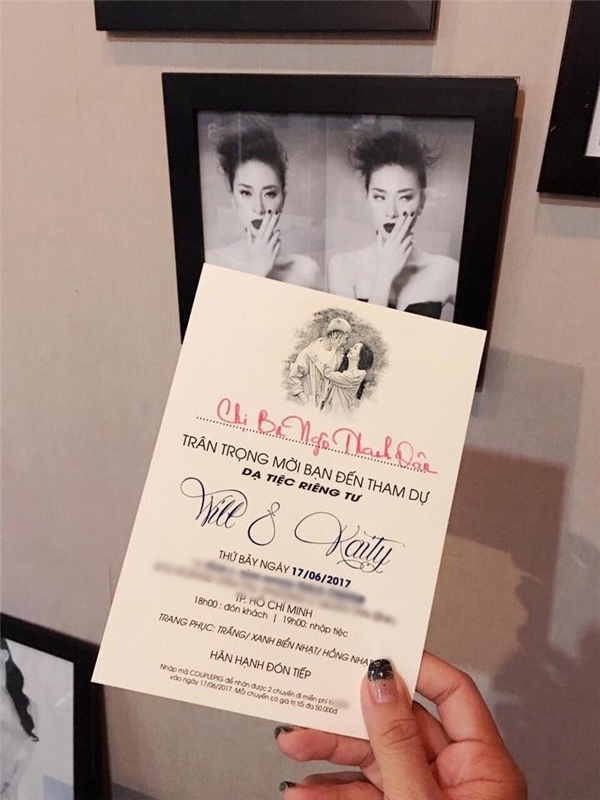 Chị Ba Ngô Thanh Vân
TRÂN TRỌNG MỜI BẠN ĐẾN THAM DỰ
DẠ TIỆC RIÊNG TƯ
Will & Kaity
THỨ BẢY NGÀY 17/06/2017
TP. HỒ CHÍ MINH
18h00 : đón khách | 19h00: nhập tiệc
TRANG PHỤC: TRẮNG/ XANH BIỂN NHẠT/ HỒNG
HÂN HẠNH ĐÓN TIẾP
Nhập mã COUPLEPIG để nhận được 2 chuyến đi miễn phí
vào ngày 17/06/2017. Mỗi chuyến có giá trị tối đa 50.000đ